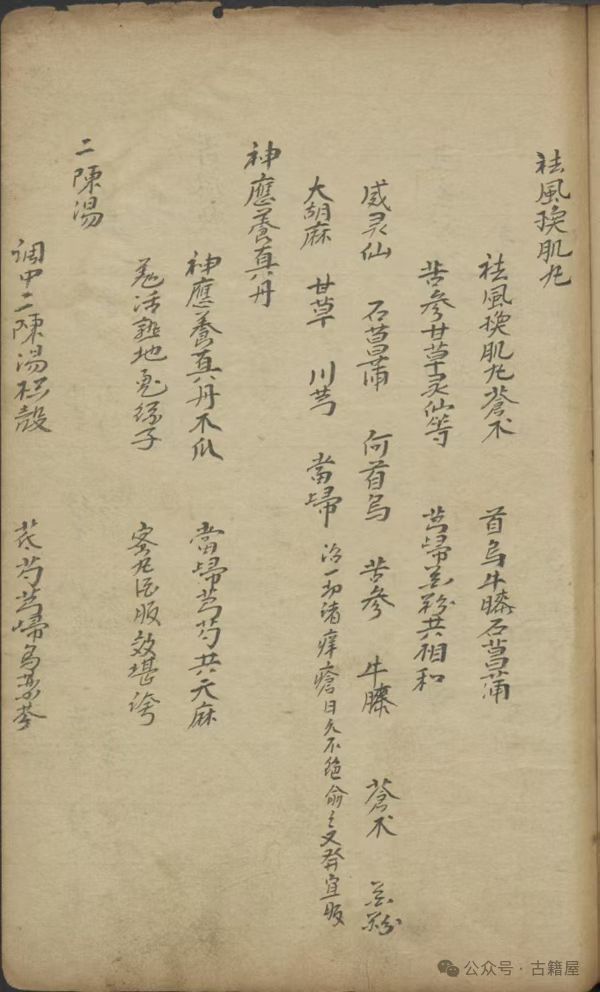 祛風換肌丸
祛風換肌丸蒼朮 首烏牛膝石菖蒲
苦參甘草灵仙等 芎歸花粉共相和
威灵仙 石菖蒲 何首烏 苦參 牛膝 蒼朮 花粉
大胡麻 甘草 川芎 當歸 治一切诸痒瘡日久不絶俞之又發宜服
神應養真丹
神應養真丹木瓜 當歸芎芍共天麻
羗活熟地菟絲子 蜜丸酒服效堪誇
二陳湯
调中二陳湯枳殼 芪芍芎歸烏藥芩
公众号·古籍屋